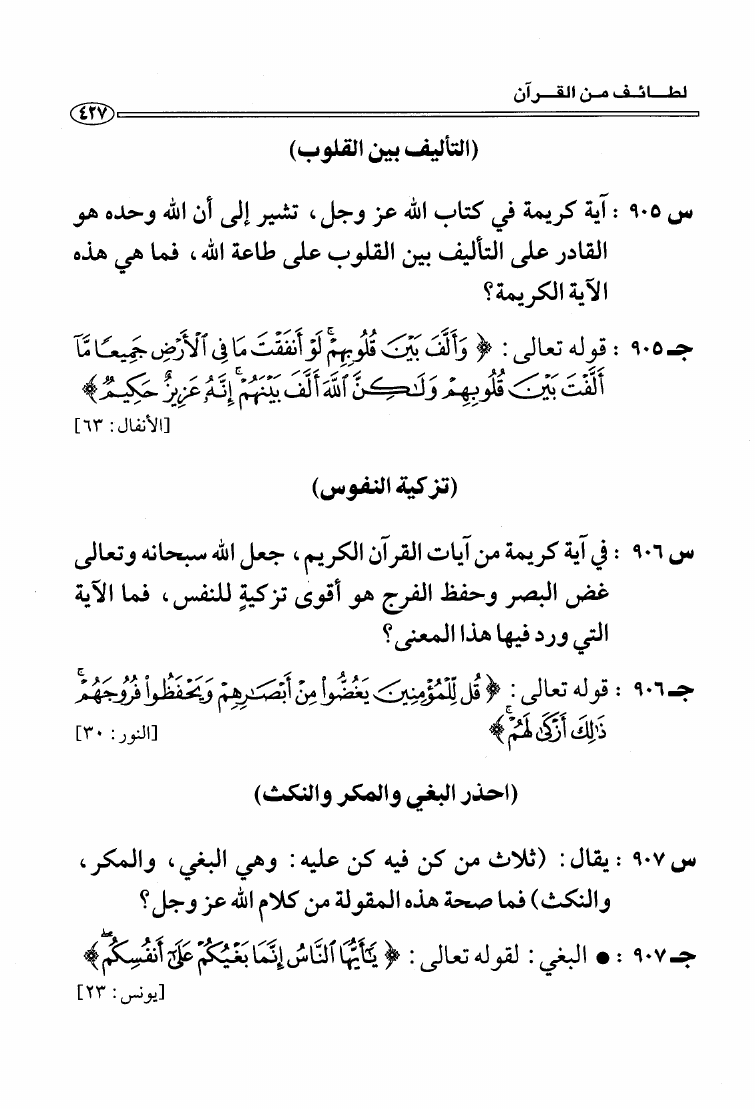 لطـــائـــف مـــن القـــرآن
٤٢٧
(التأليف بين القلوب)
س ٩٠٥ : آية كريمة في كتاب الله عز وجل، تشير إلى أن الله وحده هو
القادر على التأليف بين القلوب على طاعة الله، فما هي هذه
الآية الكريمة؟
جـ ٩٠٥ : قوله تعالى: ﴿ وَأَلَّفَ بَيْنَ قُلُوبِهِمْ ۚ لَوْ أَنفَقْتَ مَا فِي ٱلْأَرْضِ جَمِيعًا مَّآ
أَلَّفْتَ بَيْنَ قُلُوبِهِمْ وَلَـٰكِنَّ ٱللَّهَ أَلَّفَ بَيْنَهُمْ ۚ إِنَّهُۥ عَزِيزٌ حَكِيمٌ ﴾
[الأنفال: ٦٣]
(تزكية النفوس)
س ٩٠٦ : في آية كريمة من آيات القرآن الكريم، جعل الله سبحانه وتعالى
غض البصر وحفظ الفرج هو أقوى تزكيةٍ للنفس، فما الآية
التي ورد فيها هذا المعنى؟
جـ ٩٠٦ : قوله تعالى: ﴿ قُل لِّلْمُؤْمِنِينَ يَغُضُّوا۟ مِنْ أَبْصَـٰرِهِمْ وَيَحْفَظُوا۟ فُرُوجَهُمْ ۚ
ذَٰلِكَ أَزْكَىٰ لَهُمْ ۗ ﴾
[النور: ٣٠]
(احذر البغي والمكر والنكث)
س ٩٠٧ : يقال: (ثلاث من كن فيه كن عليه: وهي البغي، والمكر،
والنكث) فما صحة هذه المقولة من كلام الله عز وجل؟
جـ ٩٠٧ : ● البغي: لقوله تعالى: ﴿ يَـٰٓأَيُّهَا ٱلنَّاسُ إِنَّمَا بَغْيُكُمْ عَلَىٰٓ أَنفُسِكُم ۖ ﴾
[يونس: ٢٣]